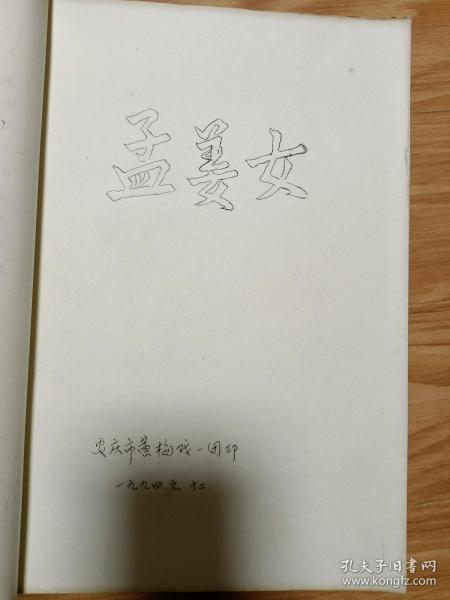 孟姜女
安庆市黄梅戏一团印
一九九四.元.十二.
孔夫子旧书网
www.kongfz.com